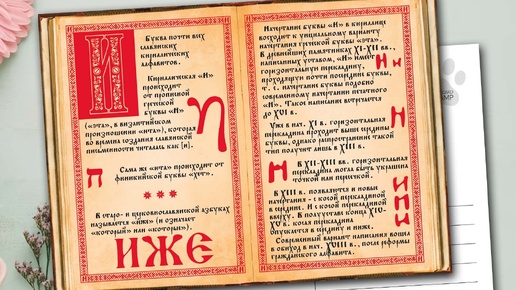 И
Буква почти всех
славянских
кириллических
алфавитов.
Кириллическая «И»
происходит
от прописной
греческой
буквы «Н»
(«эта», в византийском
произношении «ита»), которая
во времена создания славянской
письменности читалась как [и].
Сама же «ита» происходит от
финикийской буквы «хет».
***
В старо- и церковнославянской азбуках
называется «йже» (и означает
«который» или «которые»).
ИЖЕ
Начертание буквы «И» в кириллице
восходит к унициальному варианту
начертания греческой буквы «эта».
В древнейших памятниках XI-XII вв.,
написанных уставом, «И» имеет
горизонтальную перекладину,
проходящую почти посредине буквы,
т. е. начертание буквы подобно
современному начертанию печатного
«Н». Такое написание встречается
до XVI в.
Уже в нач. XI в. горизонтальная
перекладина проходит выше середины
буквы, однако распространение такой
тип получит лишь в XIII в.
В XII-XIII вв. горизонтальная
перекладина могла быть украшена
точкой или пересечкой.
В XIII в. появляется и новые
начертания - с косой перекладиной
в середине, И с косой перекладиной
вверху. В полууставе конца XIV-
XV в. косая перекладина
опускается в середину и ниже.
Современный вариант написания вошел
в обиход в нач. XVIII в., после реформы
гражданского алфавита.